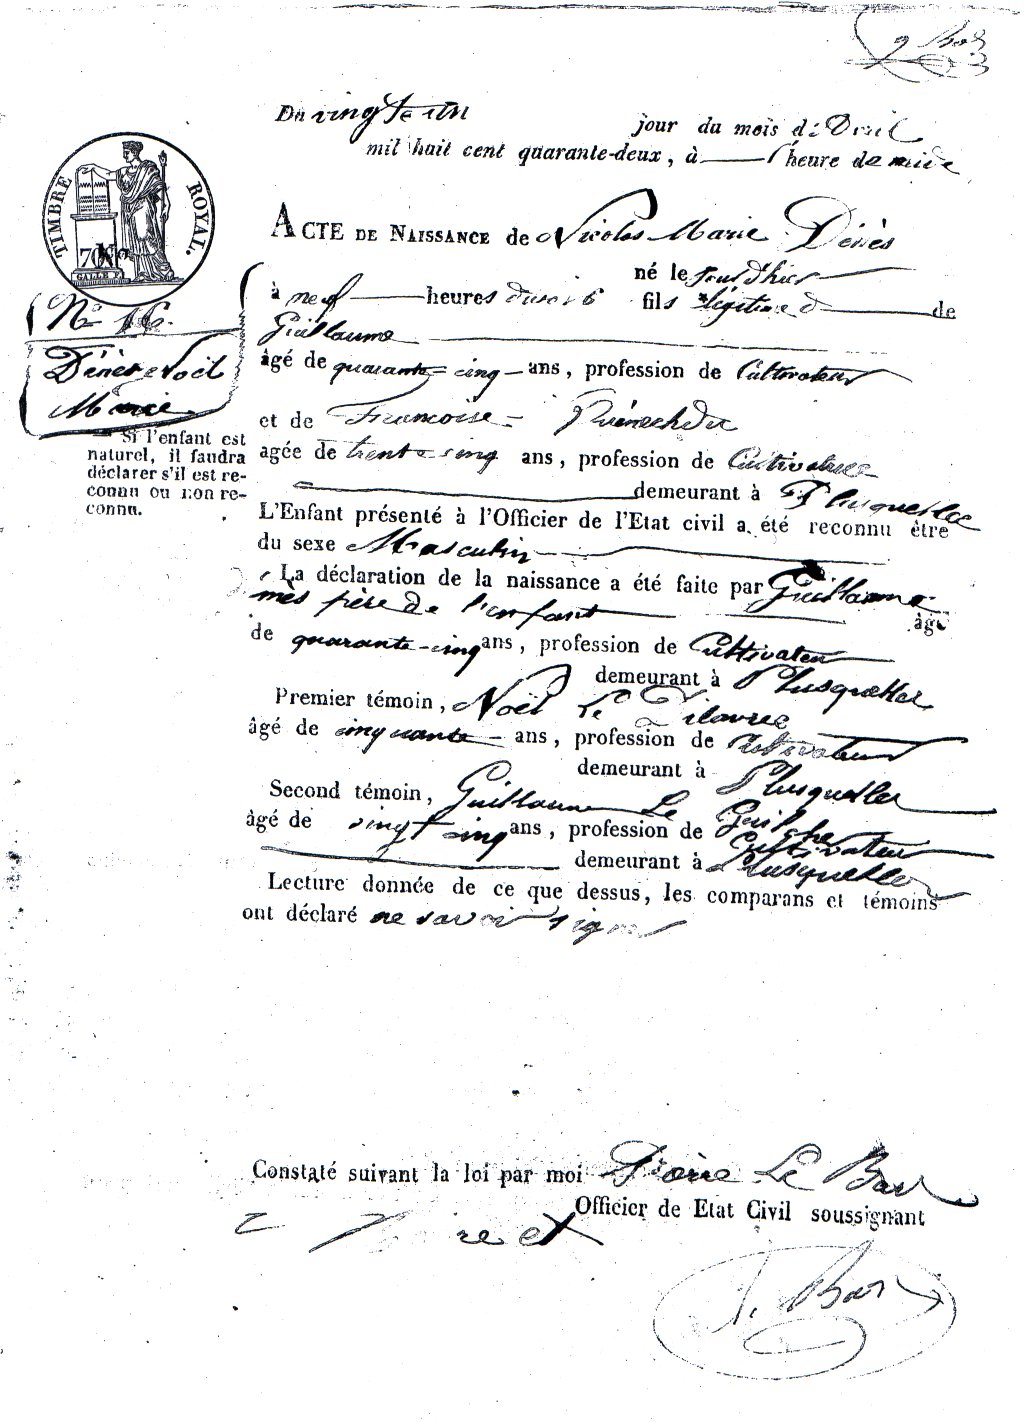 Bar
Du vingt et un
jour du mois d'Avril
mil huit cent quarante-deux, à 1 heure de midi
TIMBRE ROYAL.
70
GALLE F.
ACTE DE NAISSANCE de Nicolas Marie Dénès
né le jour d'hier
à neuf heures du soir fils légitime d de
Guillaume
N° 16.
Dénès Noël
Marie
âgé de quarante-cinq ans, profession de Cultivateur
et de Francoise
Si l'enfant est
naturel, il faudra
déclarer s'il est re-
connu ou non re-
connu.
agée de trente cinq ans, profession de Cultivatrice
demeurant à Plusquellec
L'Enfant présenté à l'Officier de l'Etat civil a été reconnu être
du sexe Masculin
La déclaration de la naissance a été faite par Guillaume
nès père de l'enfant âgé
de quarante-cinq ans, profession de Cultivateur
demeurant à Plusquellec
Premier témoin, Noël Le
âgé de cinquante ans, profession de Cultivateur
demeurant à Plusquellec
Second témoin, Guillaume Le
âgé de vingt cinq ans, profession de Cultivateur
demeurant à Plusquellec
Lecture donnée de ce que dessus, les comparans et témoins
ont déclaré ne savoir signer
Constaté suivant la loi par moi Pierre Le Bar
Officier de Etat Civil soussignant
re et
Bar